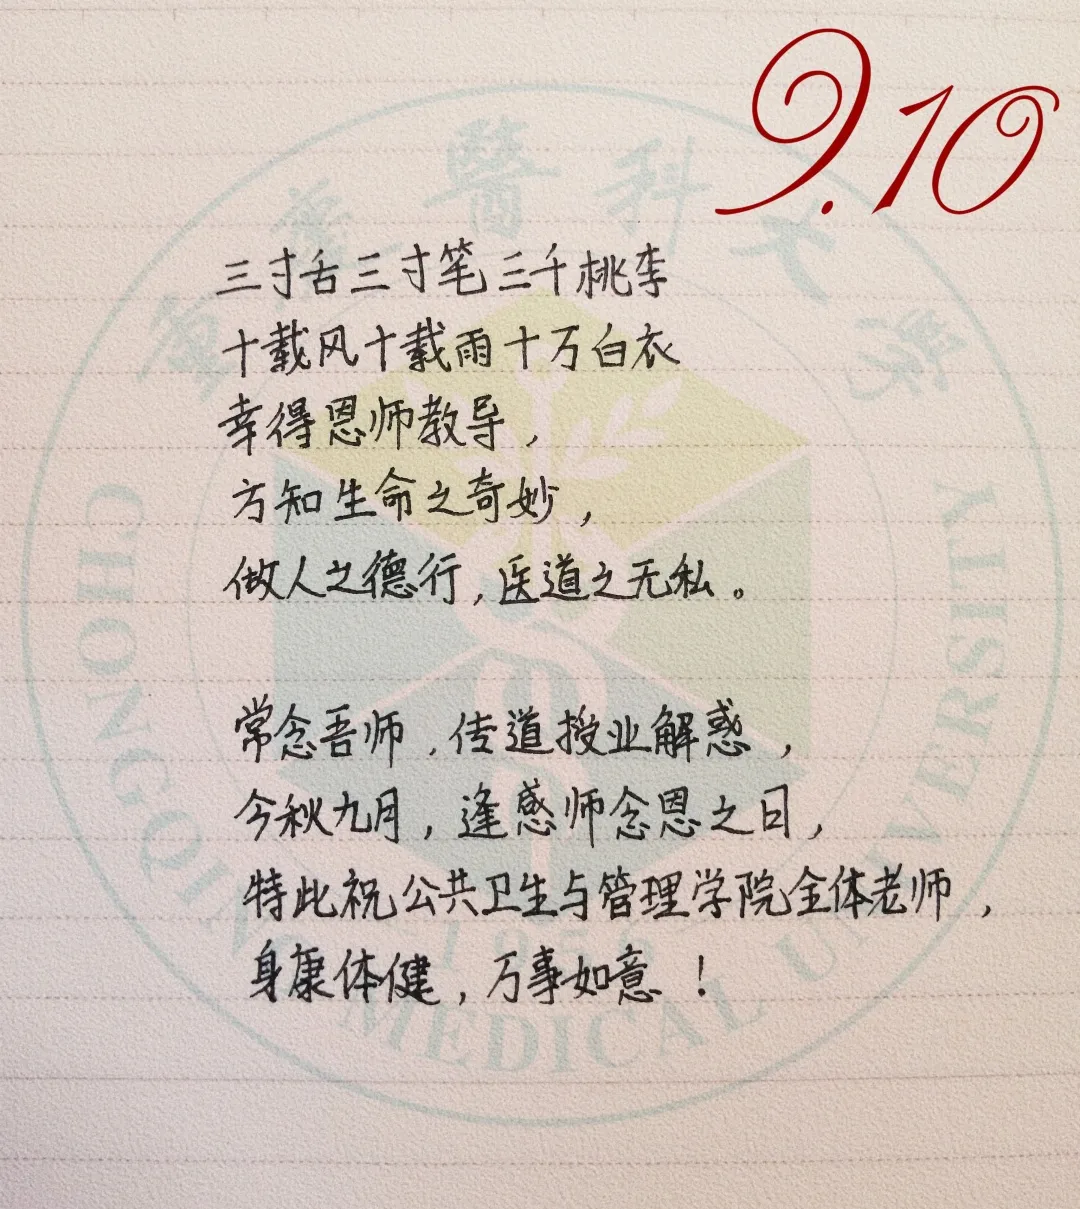 9.10
重慶醫科大學
三寸舌三寸笔三千桃李
十载风十载雨十万白衣
幸得恩师教导，
方知生命之奇妙，
做人之德行，医道之无私。
常念吾师，传道授业解惑，
今秋九月，逢感师念恩之日，
特此祝公共卫生与管理学院全体老师，
身康体健，万事如意！
1956
CHONGQING MEDICAL UNIVERSITY